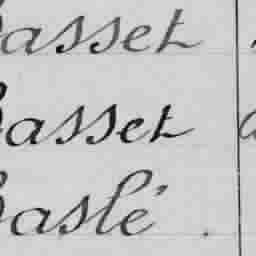 Basset
Basset
Baslé.